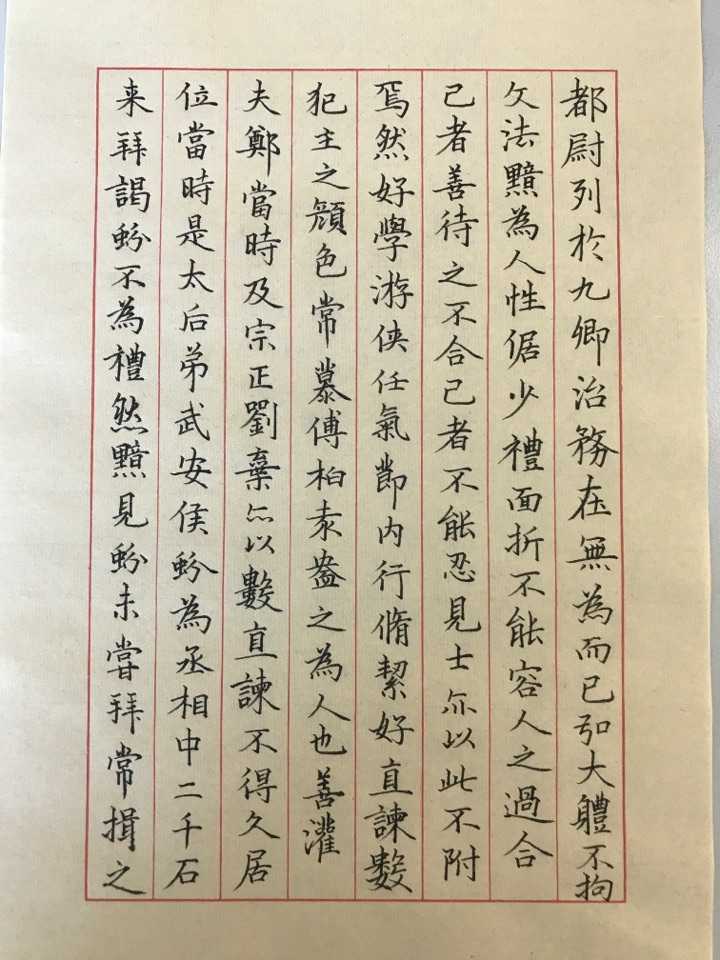 都尉列於九卿治務在無為而已弘大體不拘
文法黯為人性倨少禮面折不能容人之過合
己者善待之不合己者不能忍見士亦以此不附
焉然好學游俠任氣節內行脩絜好直諫數
犯主之顏色常慕傅柏袁盎之為人也善灌
夫鄭當時及宗正劉棄亦以數直諫不得久居
位當時是太后弟武安侯蚡為丞相中二千石
来拜謁蚡不為禮然黯見蚡未嘗拜常揖之